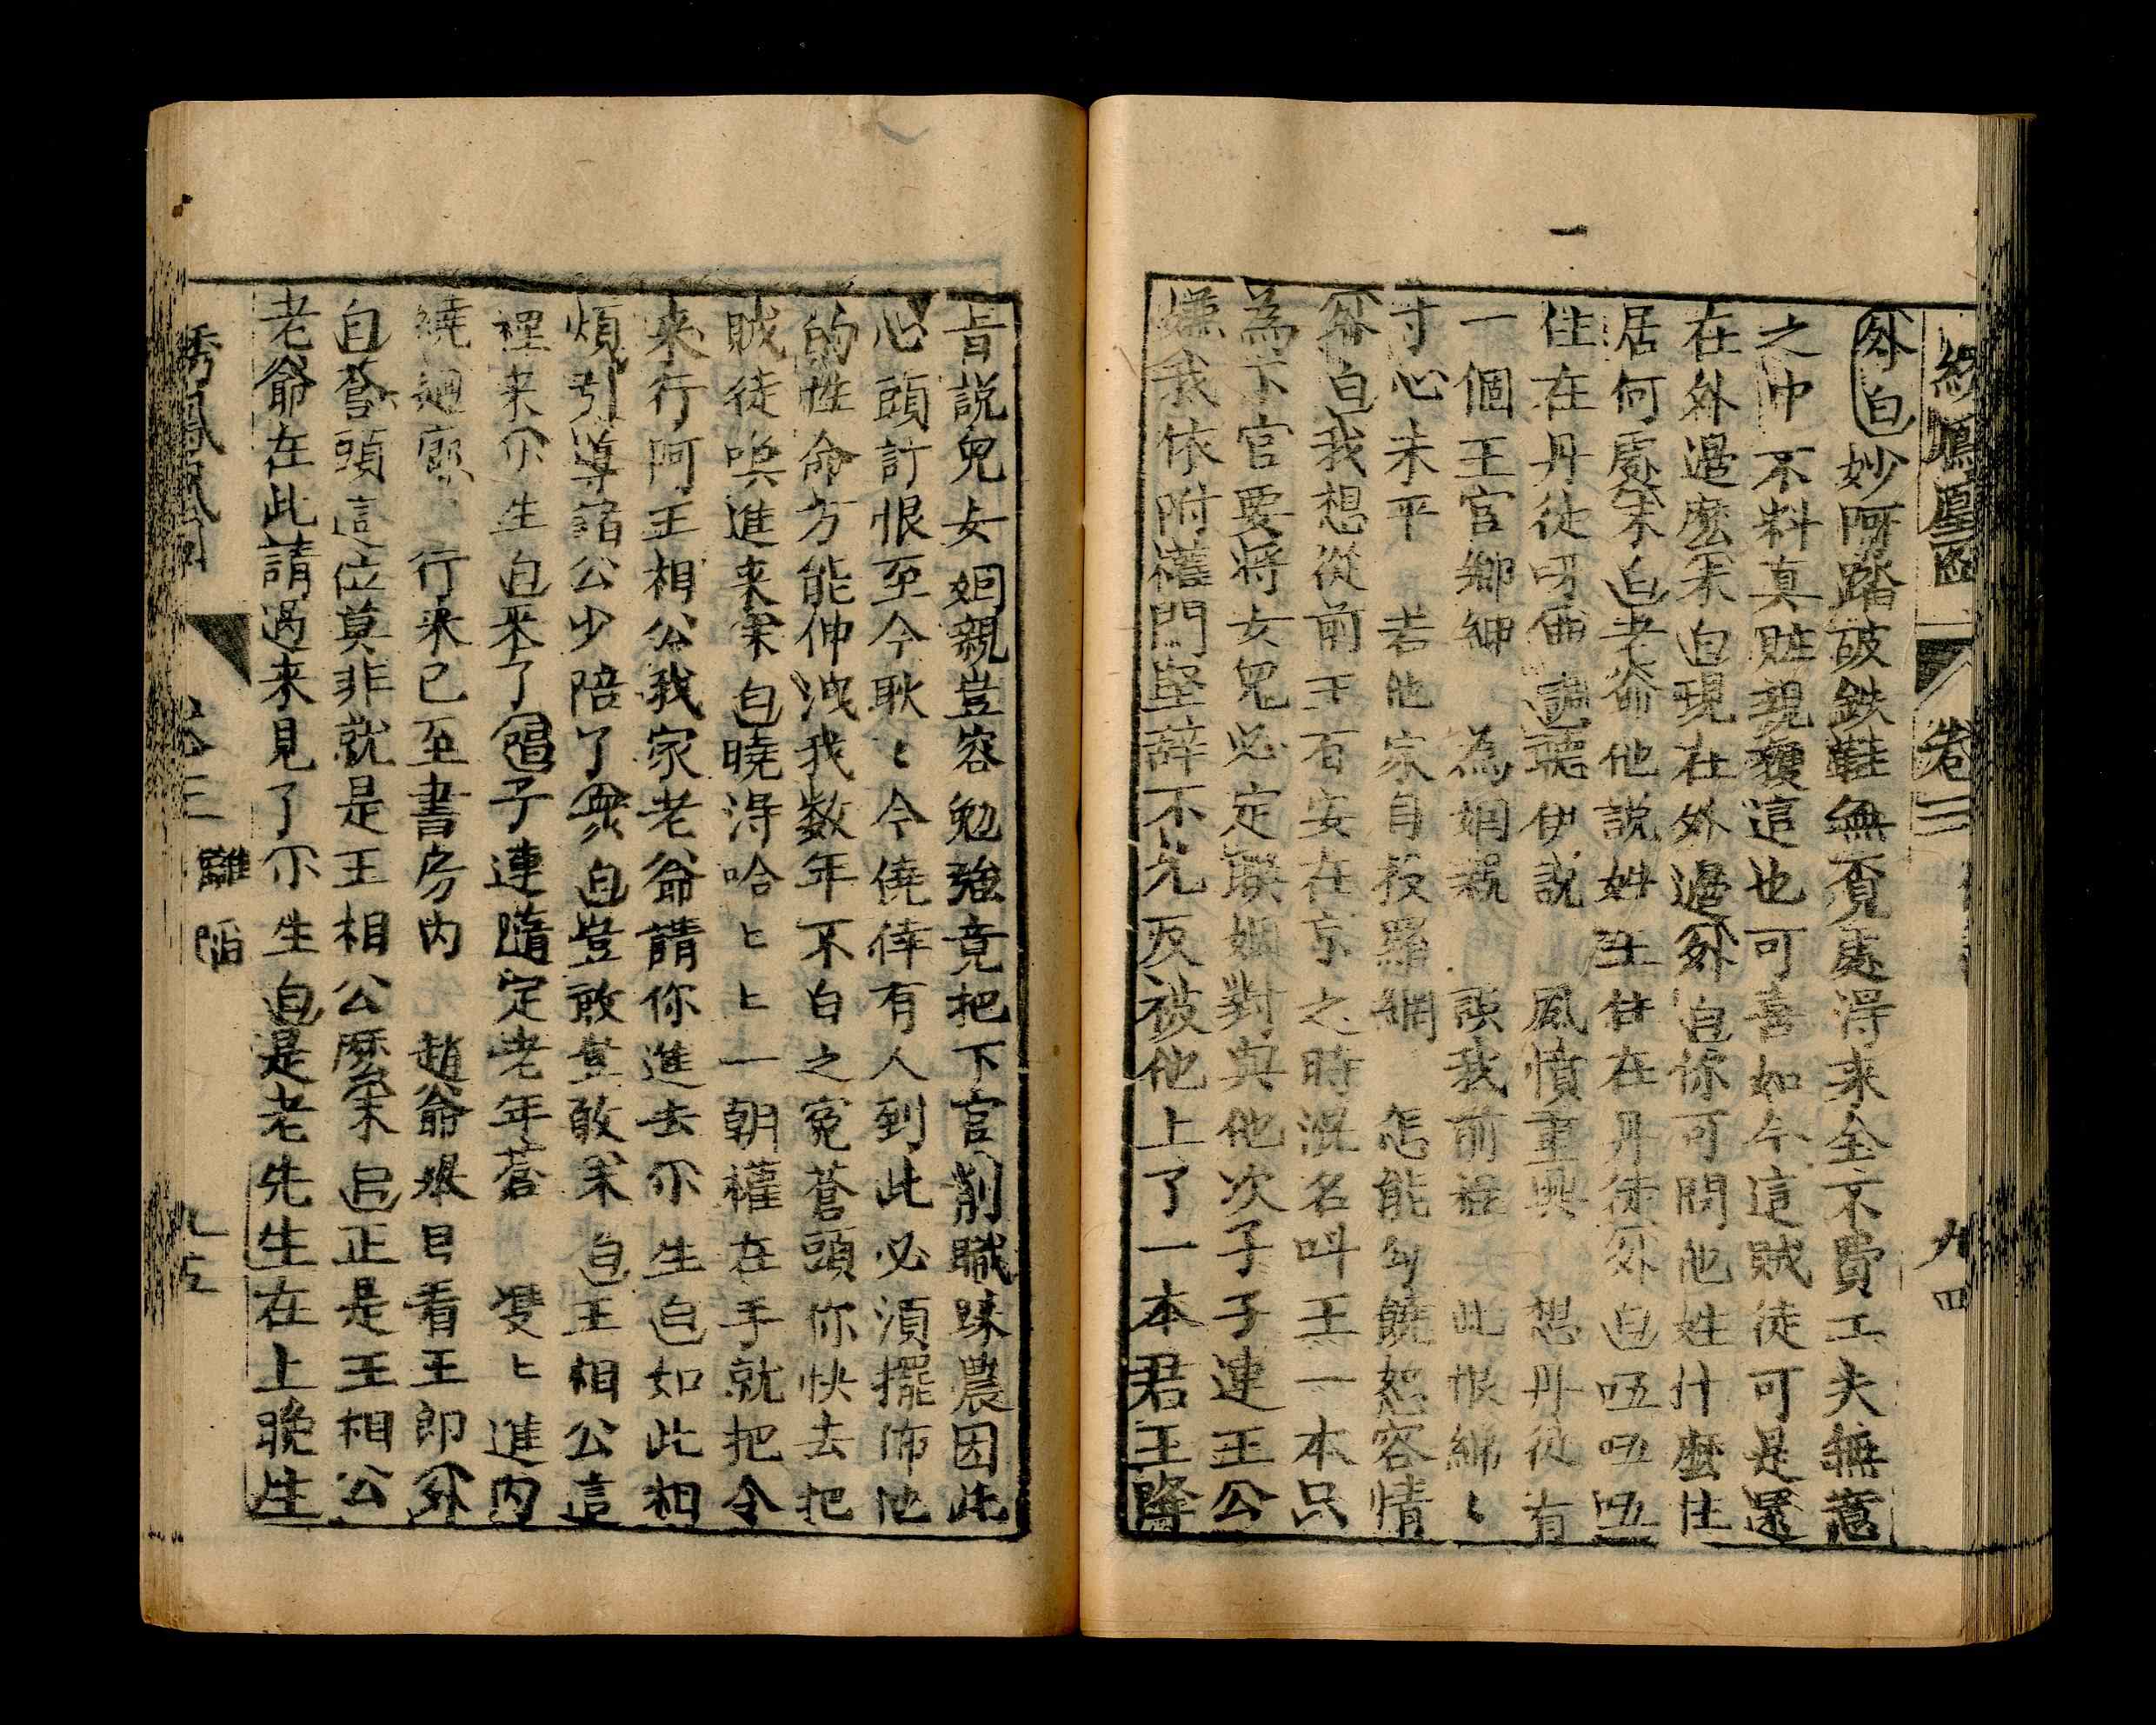 鳳凰图 卷三 九四
外白妙阿踏破鉄鞋無覔處淂来全不費工夫無意
之中不料真賍親獲這也可喜如今這賊徒可是還
在外邉麽末白現在外邉外白你可問他姓什麽住
居何處末白老爺他説姓王住在丹徒外白吥吥吥
住在丹徒呀 聴伊説 風憤重興 想丹徒有
一個王官鄉紳 為姻親 誤我前程 此恨綿〻
寸心未平 若他家自投羅網 怎能勾饒恕容情
外白我想從前王有安在京之時混名呌王一本只
為下官要将女兒必定聮姻對與他次子子連王公
嫌我依附權門坚辞不允反被他上了一本君王降
旨説兒女姻親豈容勉強竟把下官削職踈農因此
心頭討恨至今耿〻今僥倖有人到此必湏擺佈他
的性命方能伸洩我数年不白之寃蒼頭你快去把
賊徒喚進来末白曉淂哈〻〻一朝權在手就把令
来行阿王相公我家老爺請你進去小生白如此相
煩引導諸公少陪了衆白豈敢豈敢末白王相公這
裡来小生白来了唱子連隨定老年蒼 雙〻進内
繞廻廊 行来已至書房内 趙爺擡目看王郎外
白蒼頭這位莫非就是王相公麽末白正是王相公
老爺在此請過来見了小生白是老先生在上晩生
綉鳳凰图 卷三 離 陷 九五